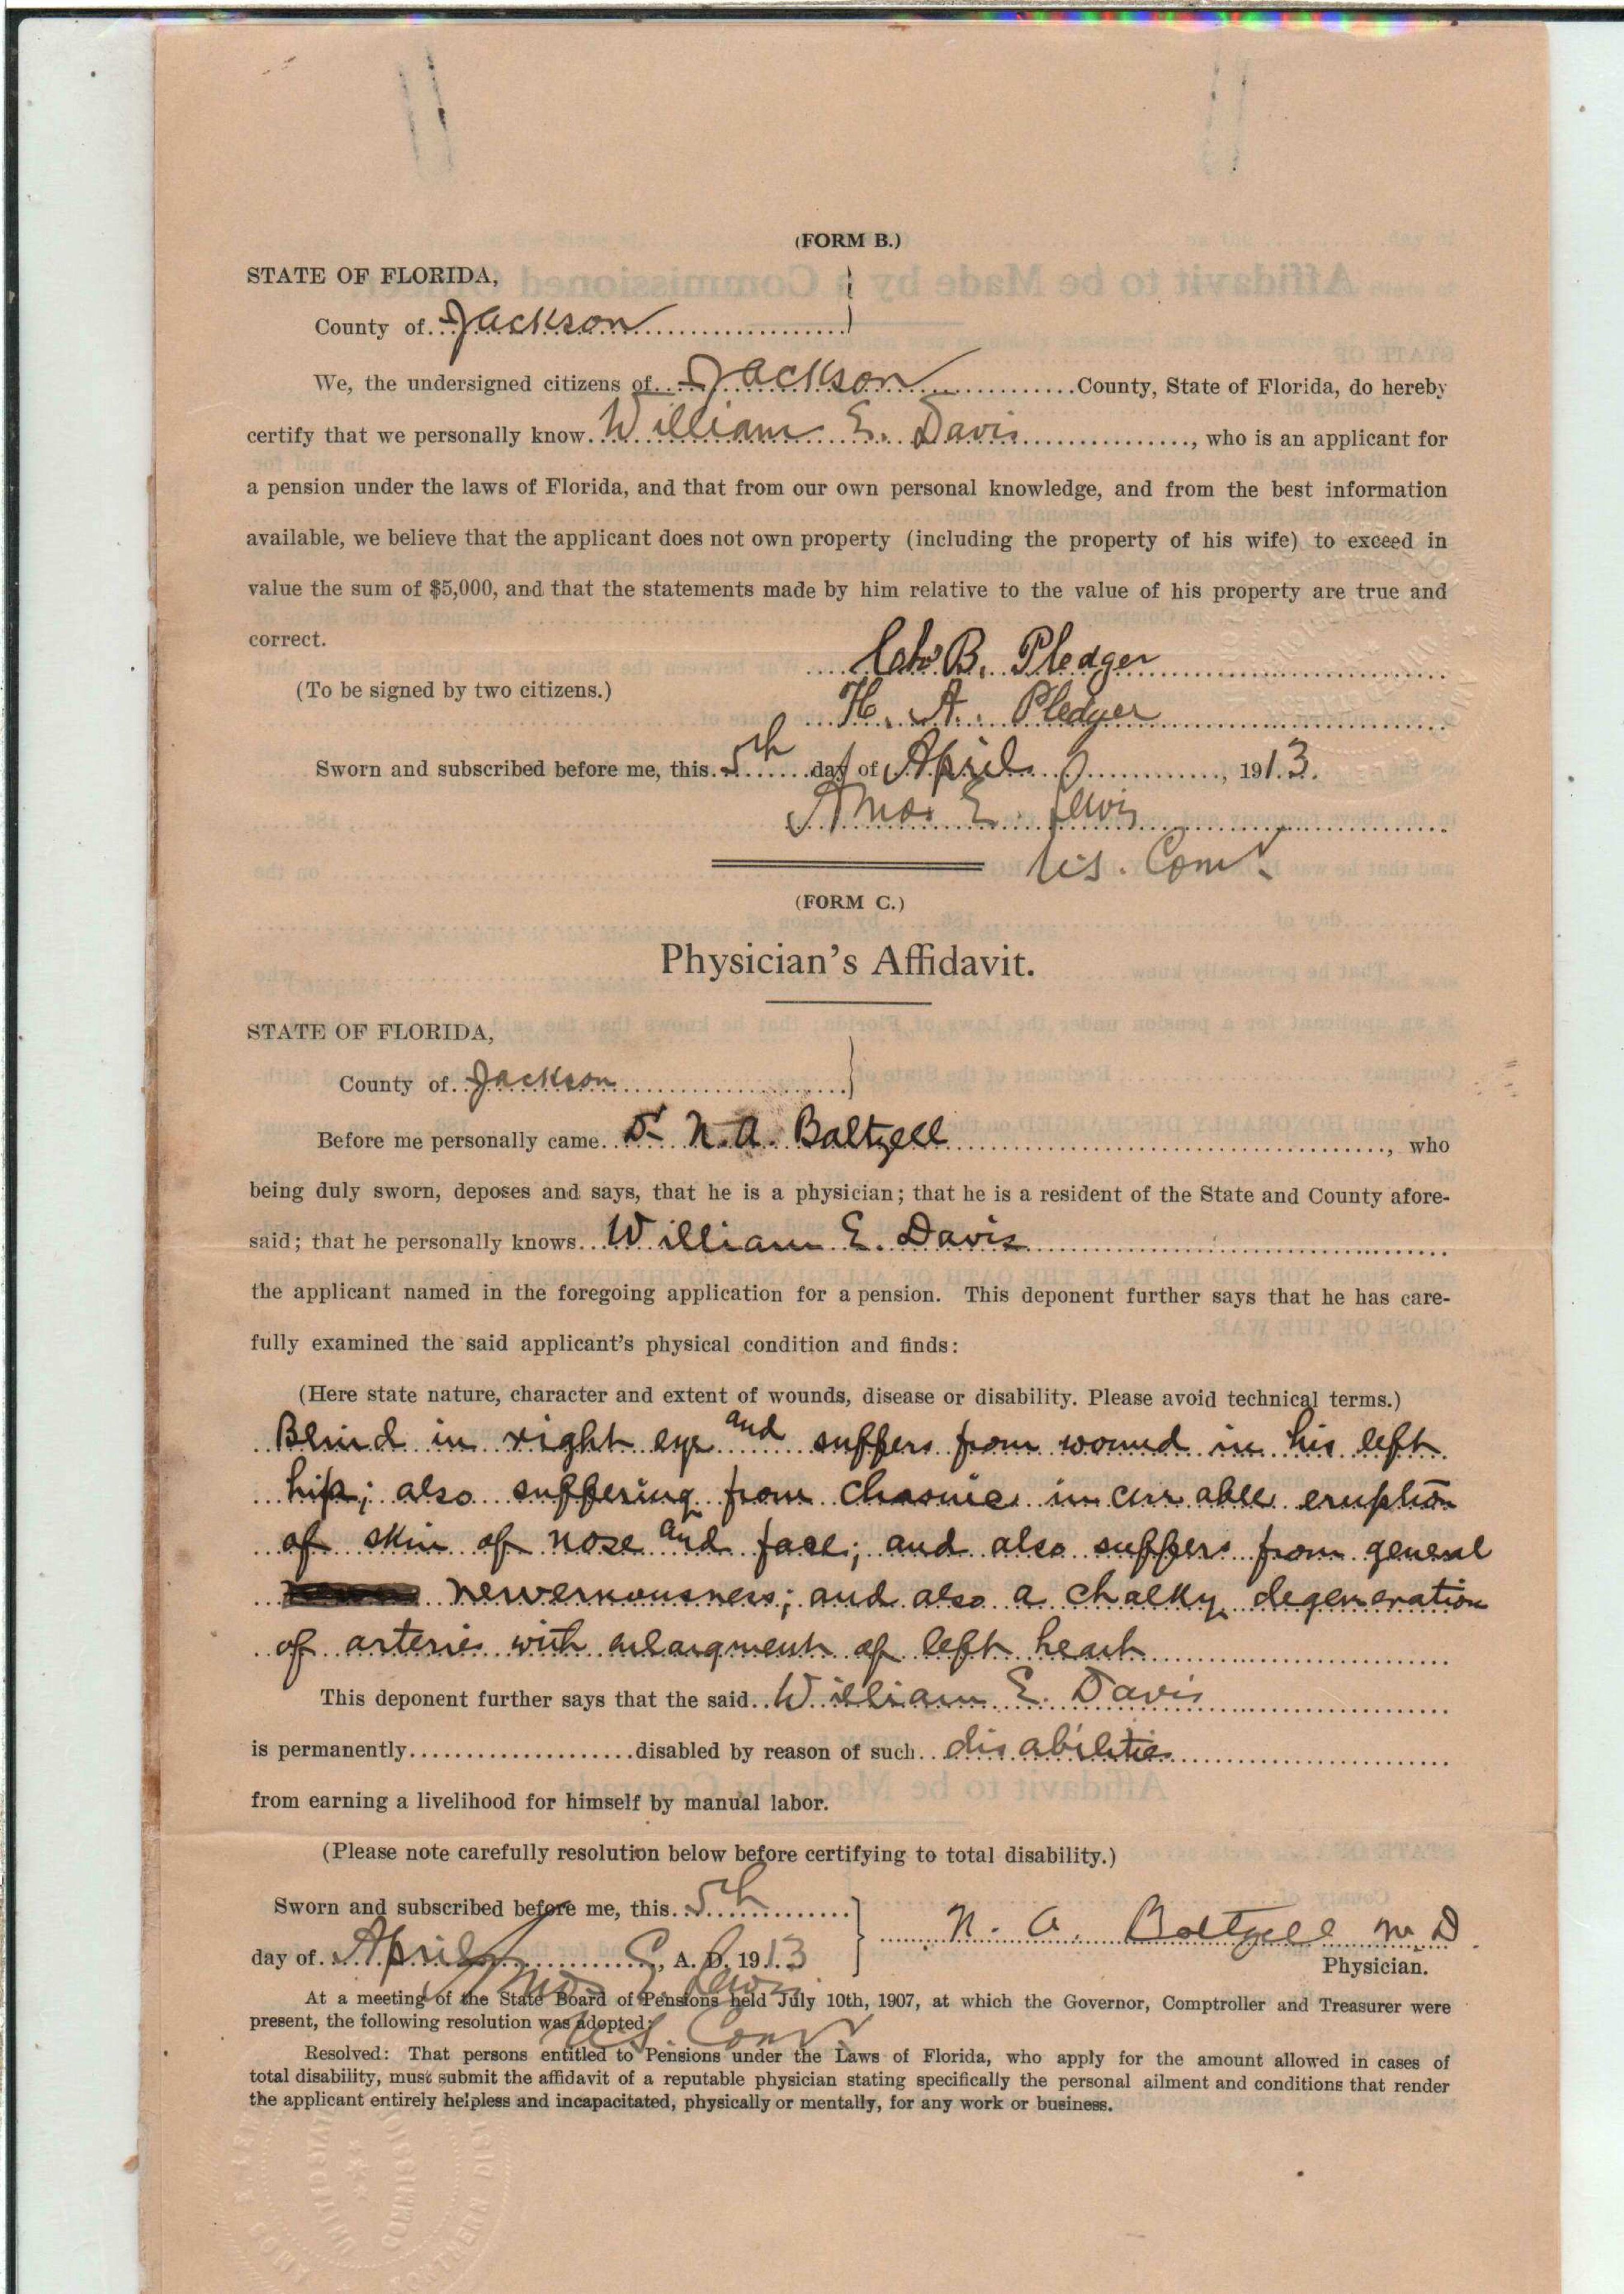 (FORM B.)
STATE OF FLORIDA,
County of Jackson
We, the undersigned citizens of Jackson County, State of Florida, do hereby
certify that we personally know William E. Davis, who is an applicant for
a pension under the laws of Florida, and that from our own personal knowledge, and from the best information
available, we believe that the applicant does not own property (including the property of his wife) to exceed in
value the sum of $5,000, and that the statements made by him relative to the value of his property are true and
correct.
B. Pledger
(To be signed by two citizens.)
H. A. Pledger
Sworn and subscribed before me, this 5th day of April, 1913.
Amos E. Lewis
U.S. Comr.
(FORM C.)
Physician's Affidavit.
STATE OF FLORIDA,
County of Jackson
Before me personally came Dr N. A. Baltzell, who
being duly sworn, deposes and says, that he is a physician; that he is a resident of the State and County afore-
said; that he personally knows William E. Davis
the applicant named in the foregoing application for a pension. This deponent further says that he has care-
fully examined the said applicant's physical condition and finds:
(Here state nature, character and extent of wounds, disease or disability. Please avoid technical terms.)
Blind in right eye and suffers from wound in his left
hip; also suffering from chronic incurable eruption
of skin of nose and face; and also suffers from general
nervernousness; and also a chalky degeneration
of arteries with enlargment of left heart
This deponent further says that the said William E. Davis
is permanently disabled by reason of such disabilities
from earning a livelihood for himself by manual labor.
(Please note carefully resolution below before certifying to total disability.)
Sworn and subscribed before me, this 5th
day of April, A. D. 1913
N. A. Baltzell M.D.
Physician.
Amos E. Lewis
U.S. Comr
At a meeting of the State Board of Pensions held July 10th, 1907, at which the Governor, Comptroller and Treasurer were
present, the following resolution was adopted:
Resolved: That persons entitled to Pensions under the Laws of Florida, who apply for the amount allowed in cases of
total disability, must submit the affidavit of a reputable physician stating specifically the personal ailment and conditions that render
the applicant entirely helpless and incapacitated, physically or mentally, for any work or business.